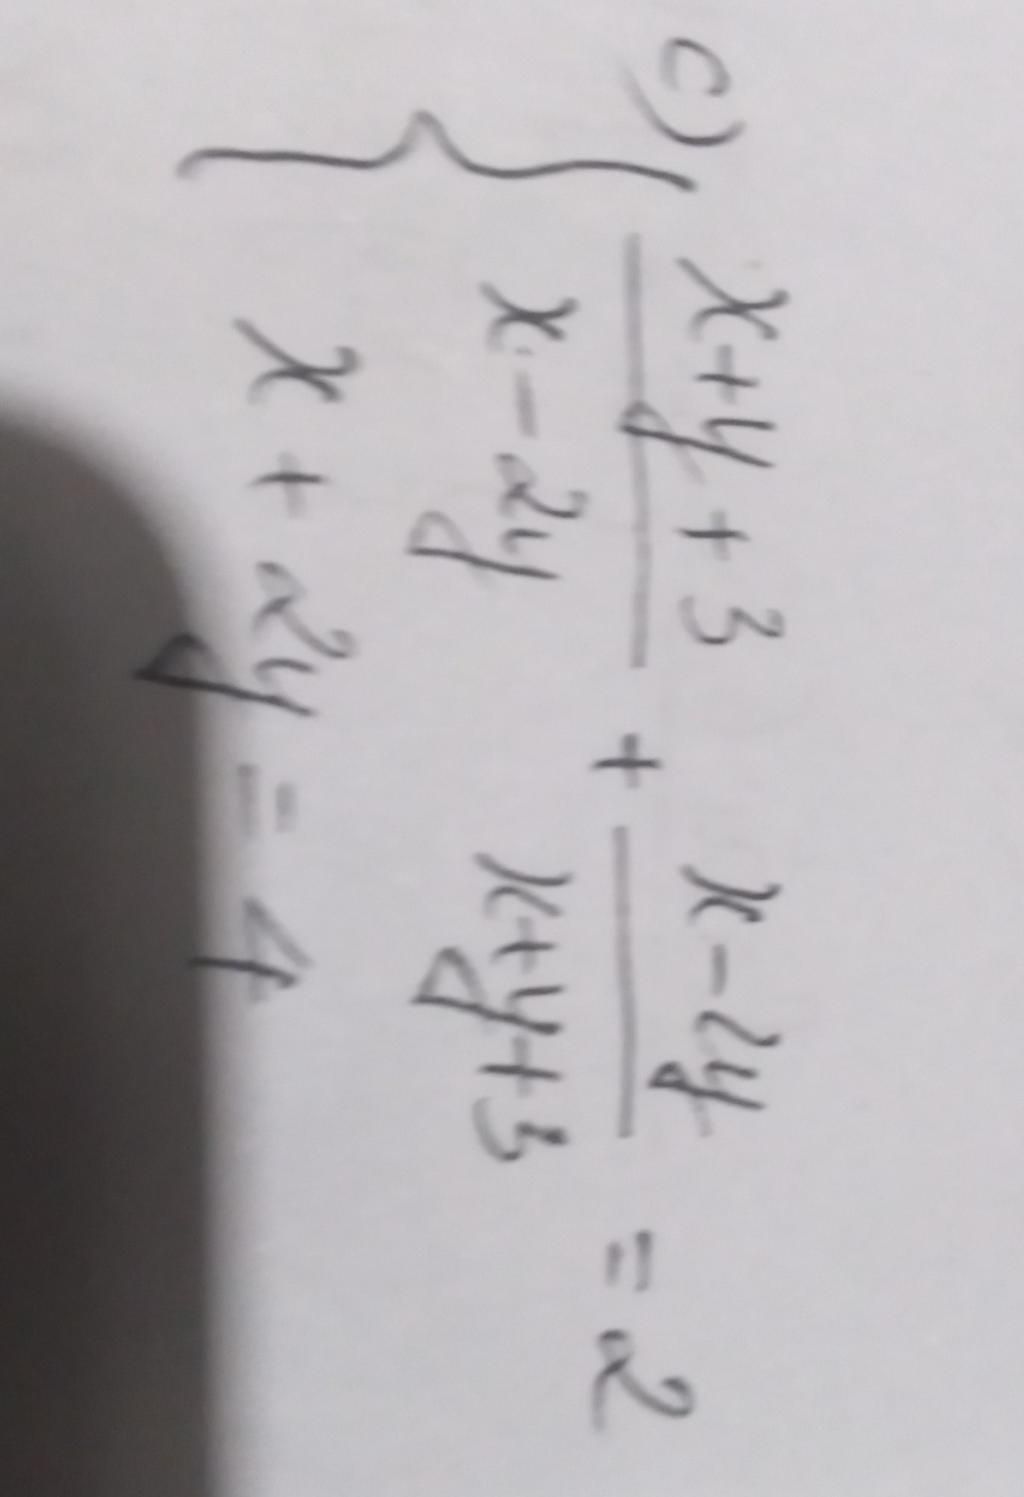 c)
{ (x+y+3)/(x-2y) + (x-2y)/(x+y+3) = 2
x + 2y = 4